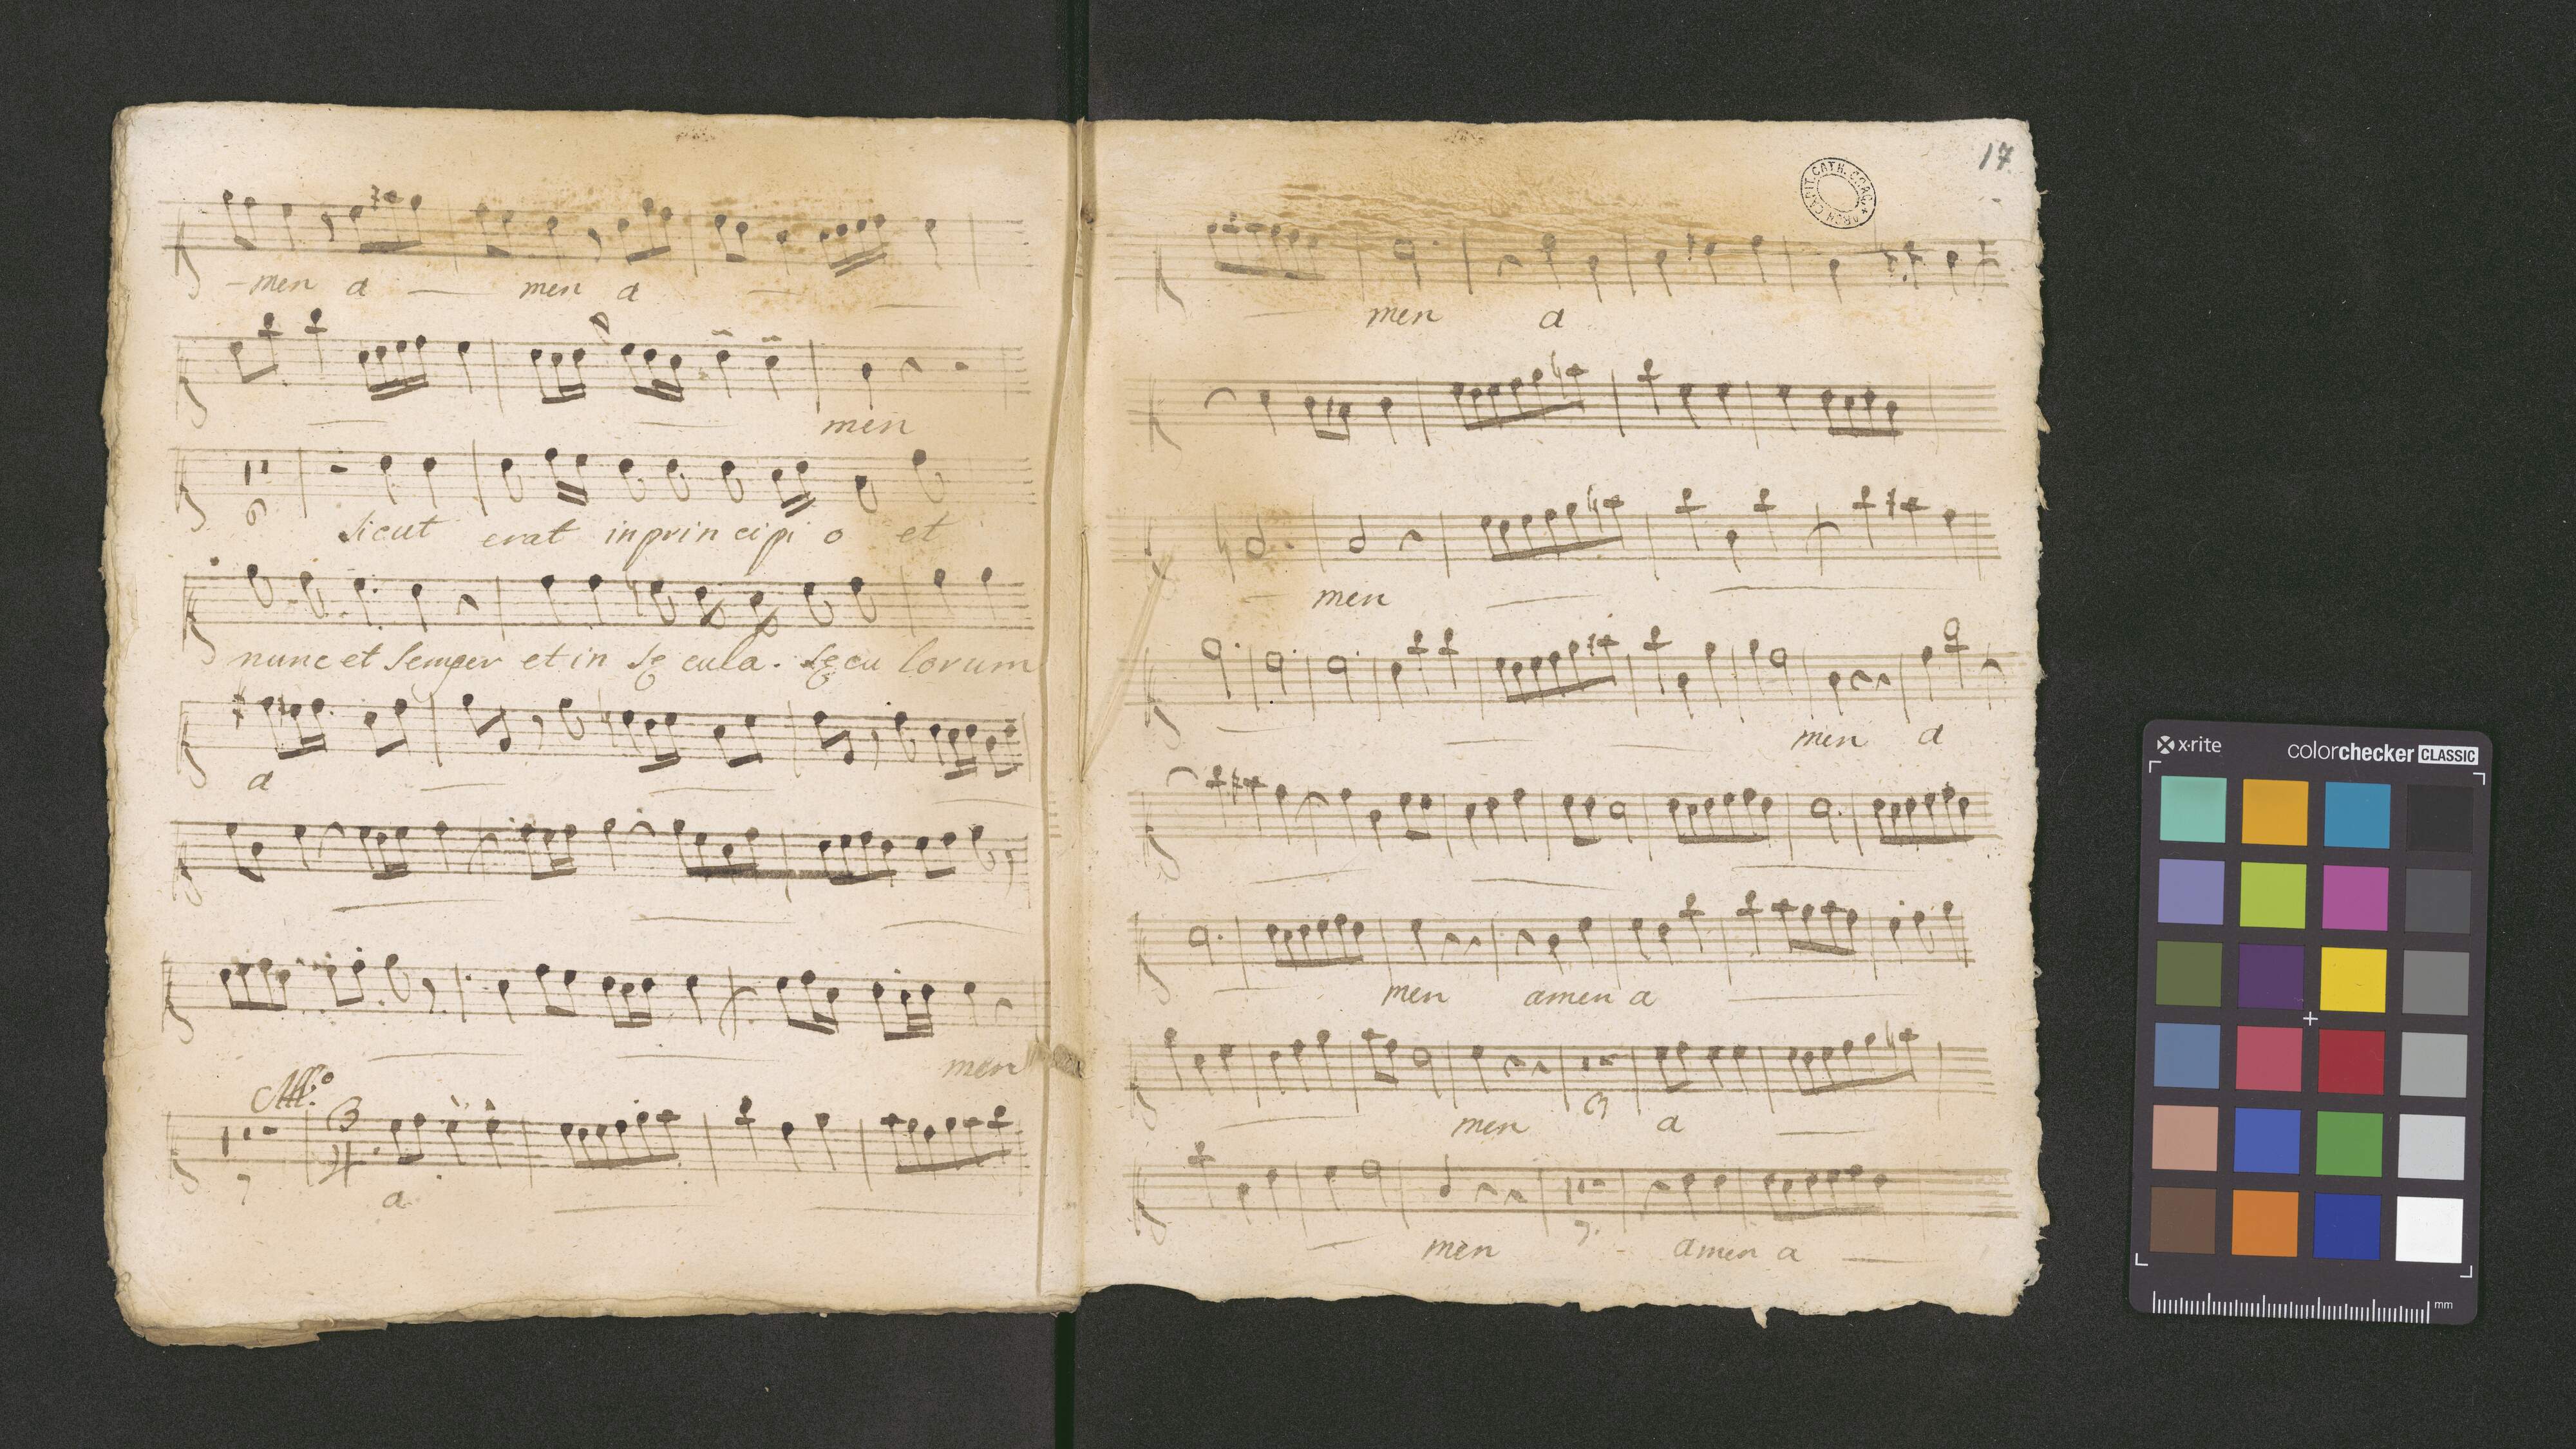 -men a — men a — —
— — men
6
sicut erat in prin cipi o et
nunc et semper et in sę cula. sęcu lorum
a — — —
— — —
— — men
All:o
3
4
7
a — —
17
ARCH. CAPIT. CATH. CRAC.
— men a
— men — —
— — — men a
— — —
— men amen a —
— men a —
3
— men amen a —
7.
x-rite colorchecker CLASSIC
mm